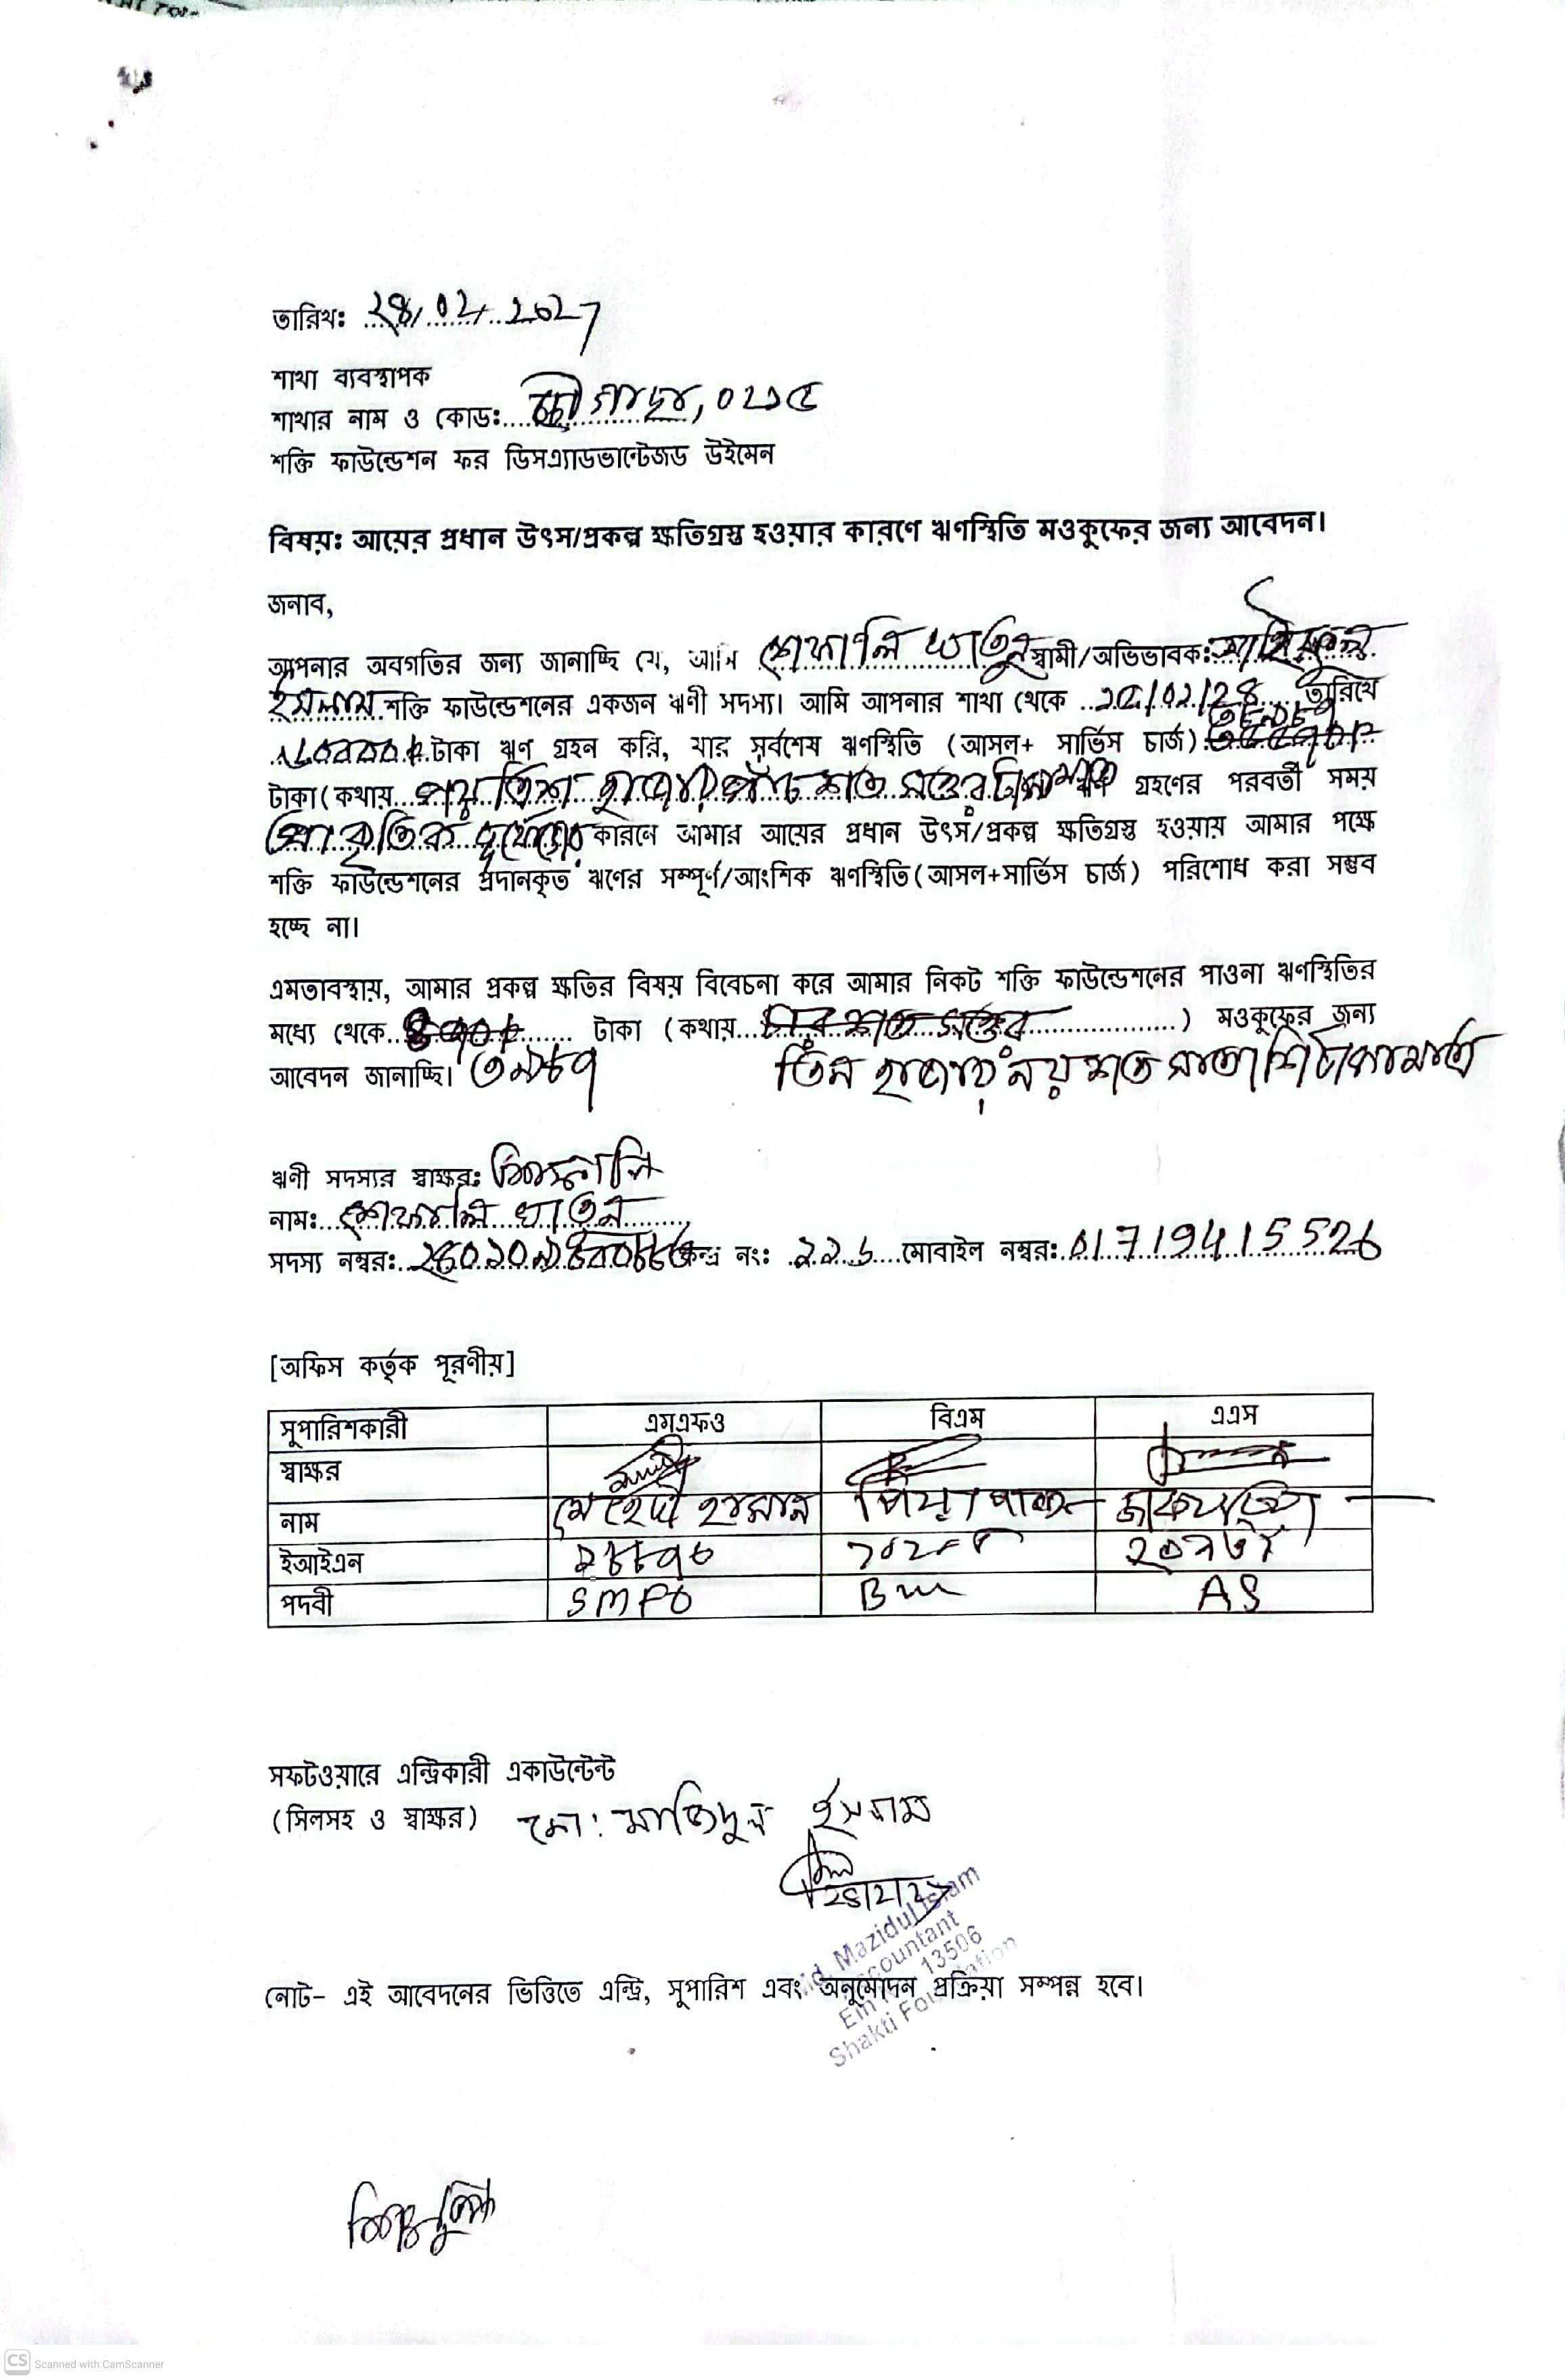 তারিখঃ ২৪/০২/২০২
শাখা ব্যবস্থাপক
শাখার নাম ও কোডঃ চৌগাছা, ০২১৫
শক্তি ফাউন্ডেশন ফর ডিসএ্যাডভান্টেজড উইমেন
বিষয়ঃ আয়ের প্রধান উৎস/প্রকল্প ক্ষতিগ্রস্ত হওয়ার কারণে ঋণস্থিতি মওকুফের জন্য আবেদন।
জনাব,
আপনার অবগতির জন্য জানাচ্ছি যে, আমি শেফালি খাতুন স্বামী/অভিভাবক:
ইসলাম শক্তি ফাউন্ডেশনের একজন ঋণী সদস্য। আমি আপনার শাখা থেকে তারিখে
টাকা ঋণ গ্রহন করি, যার সর্বশেষ ঋণস্থিতি (আসল+ সার্ভিস চার্জ)
টাকা(কথায় পয়ত্রিশ হাজার পাঁচ শত সত্তর টাকা মাত্র ঋণ গ্রহণের পরবর্তী সময়
প্রাকৃতিক দূর্যোগের কারণে আমার আয়ের প্রধান উৎস/প্রকল্প ক্ষতিগ্রস্ত হওয়ায় আমার পক্ষে
শক্তি ফাউন্ডেশনের প্রদানকৃত ঋণের সম্পূর্ণ/আংশিক ঋণস্থিতি(আসল+সার্ভিস চার্জ) পরিশোধ করা সম্ভব
হচ্ছে না।
এমতাবস্থায়, আমার প্রকল্প ক্ষতির বিষয় বিবেচনা করে আমার নিকট শক্তি ফাউন্ডেশনের পাওনা ঋণস্থিতির
মধ্যে থেকে টাকা (কথায় চার শত সত্তর) মওকুফের জন্য
আবেদন জানাচ্ছি। ৩৯৮৭ তিন হাজার নয় শত সাতাশি টাকা মাত্র
ঋণী সদস্যর স্বাক্ষরঃ শেফালি
নামঃ শেফালি খাতুন
সদস্য নম্বরঃ কেন্দ্র নংঃ ২২৬ মোবাইল নম্বরঃ 01719415526
[অফিস কর্তৃক পূরণীয়]
সুপারিশকারী এমএফও বিএম এএস
স্বাক্ষর
নাম মেহেদী হাসান
ইআইএন
পদবী SMFO Bm AS
সফটওয়ারে এন্ট্রিকারী একাউন্টেন্ট
(সিলসহ ও স্বাক্ষর) মো: মাজিদুল ইসলাম
Md. Mazidul Islam
Accountant
13506
Shakti Foundation
নোট- এই আবেদনের ভিত্তিতে এন্ট্রি, সুপারিশ এবং অনুমোদন প্রক্রিয়া সম্পন্ন হবে।
CS Scanned with CamScanner